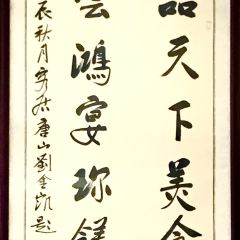 品天下美食
鴻宴珍
辰秋月客居唐山劉金凱題